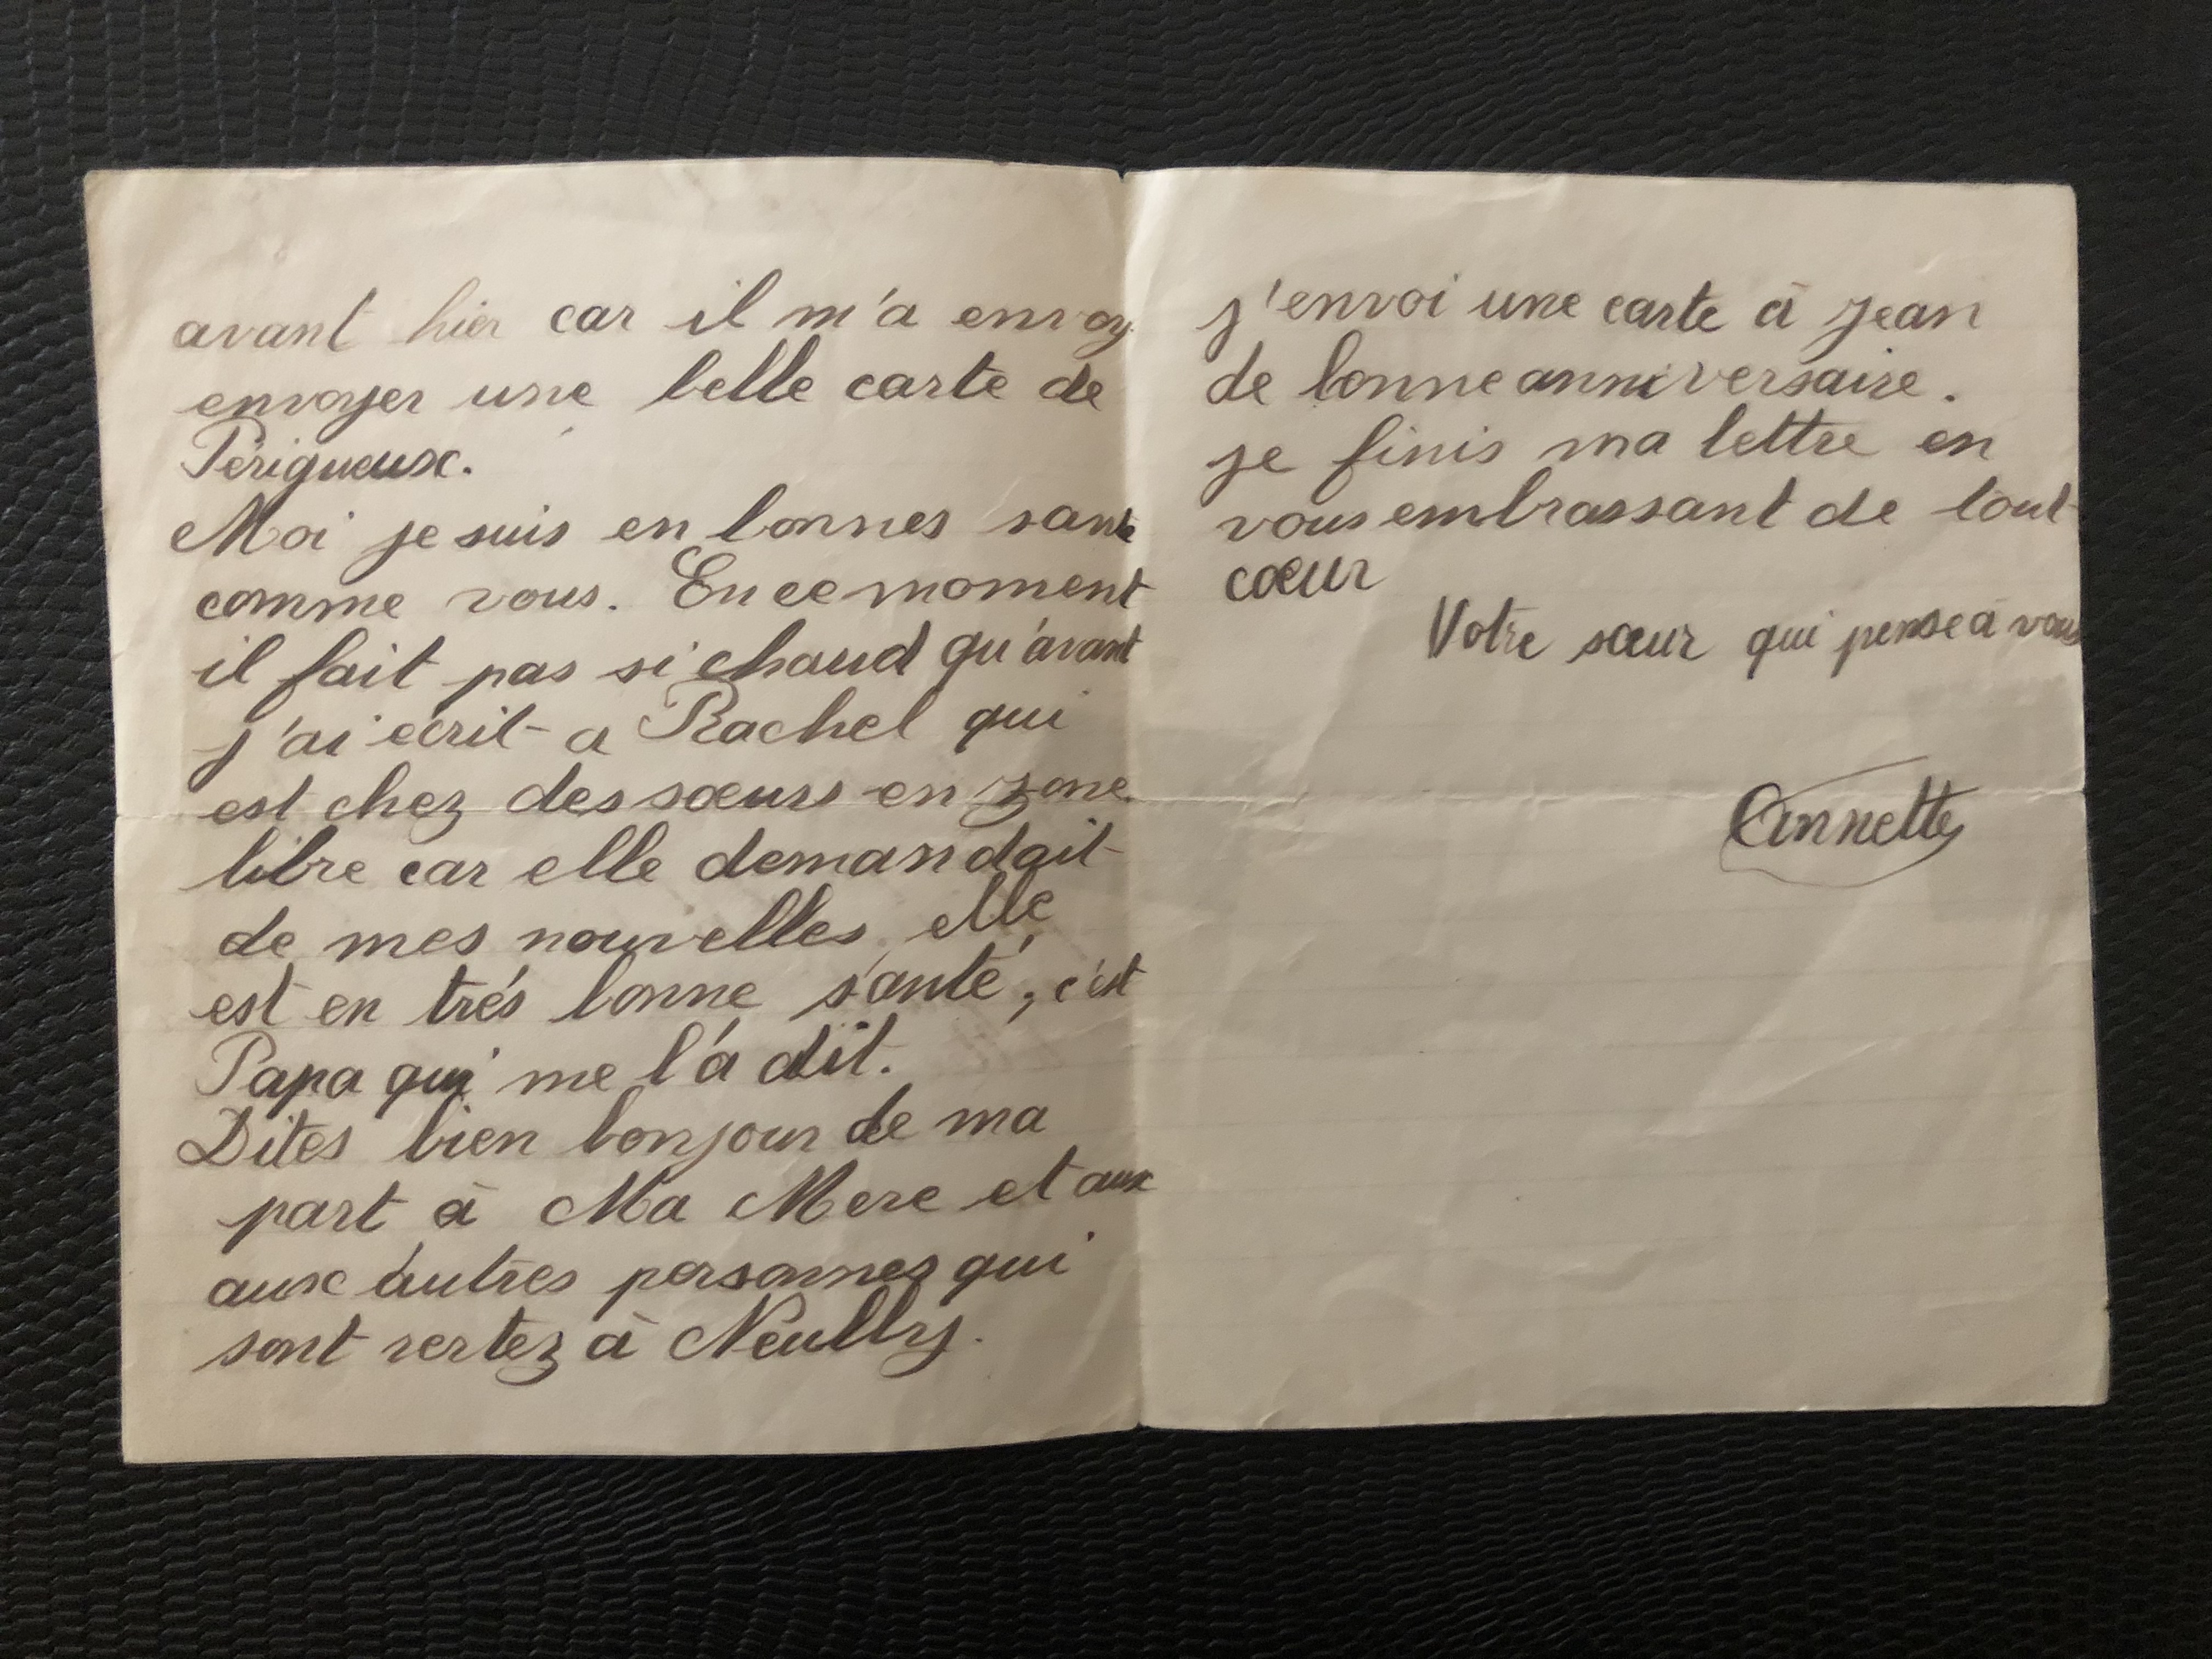 avant hier car il m'a envoy
envoyer une belle carte de
Périgueux.
Moi je suis en bonnes santé
comme vous. En ce moment
il fait pas si chaud qu'avant
j'ai écrit a Rachel qui
est chez des sœurs en zone
libre car elle demandait
de mes nouvelles, elle
est en trés bonne santé, c'est
Papa qui me l'a dit.
Dites bien bonjour de ma
part à Ma Mere et aux
aux autres personnes qui
sont restez à Neully.
j'envoi une carte à Jean
de bonne anniversaire.
je finis ma lettre en
vous embrassant de tout
cœur
Votre sœur qui pense à vous
Annette